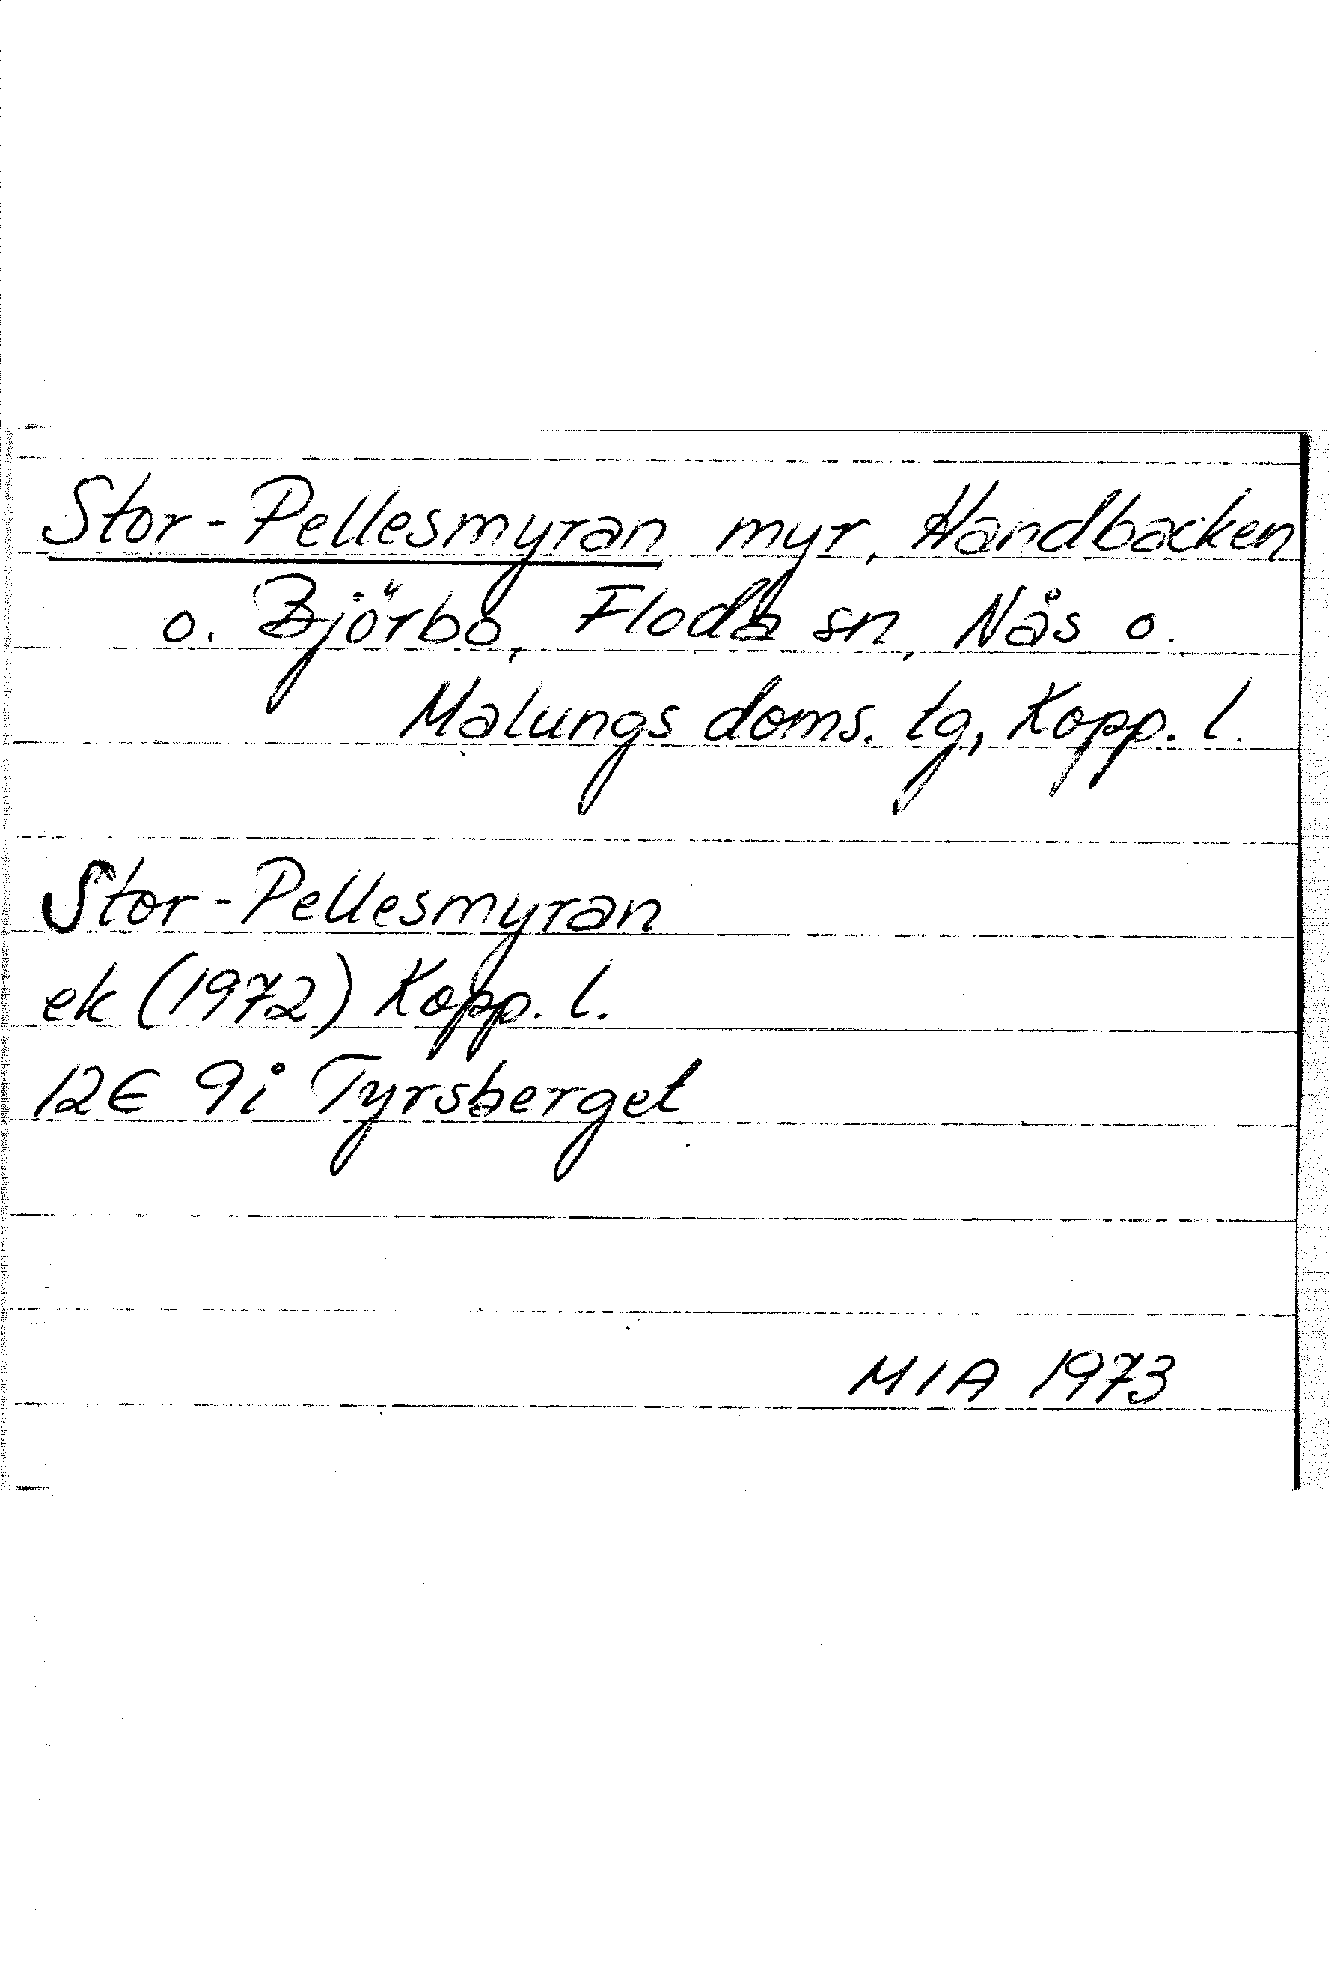 Stor-Pellesmyran myr, Handbacken
o. Björbo, Floda sn, Nås o.
Malungs doms. tg, Kopp. l.
Stor-Pellesmyran
ek (1972) Kopp. l.
12E 9i Tyrsberget
MIA 1973